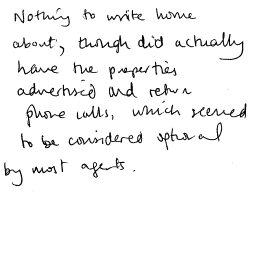 Nothing to write home
about, though did actually
have the properties
advertised and return
phone calls, which seemed
to be considered optional
by most agents.